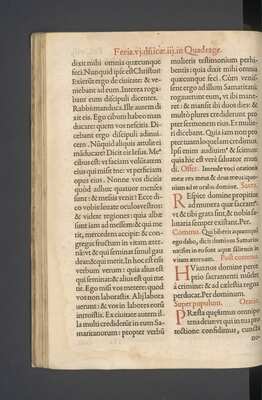 Feria.vj.dñice.iij.in Quadrage.
dixit mihi omnia quæcunque
feci. Nunquid ipse est Christus?
Exierũt ergo de ciuitate: & ve-
niebant ad eum. Interea roga-
bant eum discipuli dicentes.
Rabbi manduca. Ille autem di-
xit eis. Ego cibum habeo man
ducare: quem vos nescitis. Di-
cebant ergo discipuli adinui-
cem. Nũquid aliquis attulit ei
māducare? Dicit eis Iesus. Me'
cibus est: vt faciam volũtatem
eius qui misit me: vt perficiam
opus eius. Nonne vos dicitis
quòd adhuc quatuor menses
sunt: & messis venit? Ecce di-
co vobis: leuate oculos vestros:
& videte regiones: quia albæ
sunt iam ad messem: & qui me
tit, mercedem accipit: & con-
gregat fructum in vitam æter-
nā: vt & qui seminat simul gau
deat & qui metit. In hoc est eñ
verbum verum: quia alius est
qui seminat: & alius est qui me
tit. Ego misi vos metere: quod
vos non laborastis. Alij labora
uerunt: & vos in labores eorũ
introistis. Ex ciuitate autem il-
la multi crediderũt in eum Sa-
maritanorum: propter verbũ
mulieris testimonium perhi-
bentis: quia dixit mihi omnia
quæcunque feci. Cùm venis-
sent ergo ad illum Samaritani:
rogauerunt eum, vt ibi mane-
ret: & mansit ibi duos dies: &
multò plures crediderunt pro
pter sermonem eius. Et mulie-
ri dicebant. Quia iam non pro
pter tuam loquelam credimus.
Ipsi enim audiuimus: & scimus
quia hic est verè saluator mun
di. Offer. Intende voci orationis
meæ rex meus & deus meus: quo-
niam ad te orabo domine. Secre.
Respice domine propitius
ad munera quæ sacramus:
vt & tibi grata sint, & nobis sa-
lutaria semper existant. Per.
Commu. Qui biberit aquam quā
ego dabo, dicit dominus Samarita-
næ: fiet in eo fons aquæ salientis in
vitam æternam. Post commu.
Huius nos domine perce-
ptio sacramenti mũdet
à crimine: & ad cælestia regna
perducat. Per dominum.
Super populum. Oratio.
Præsta quæsumus omnipo-
tens deus: vt qui in tua pro
tectione confidimus, cuncta
no-